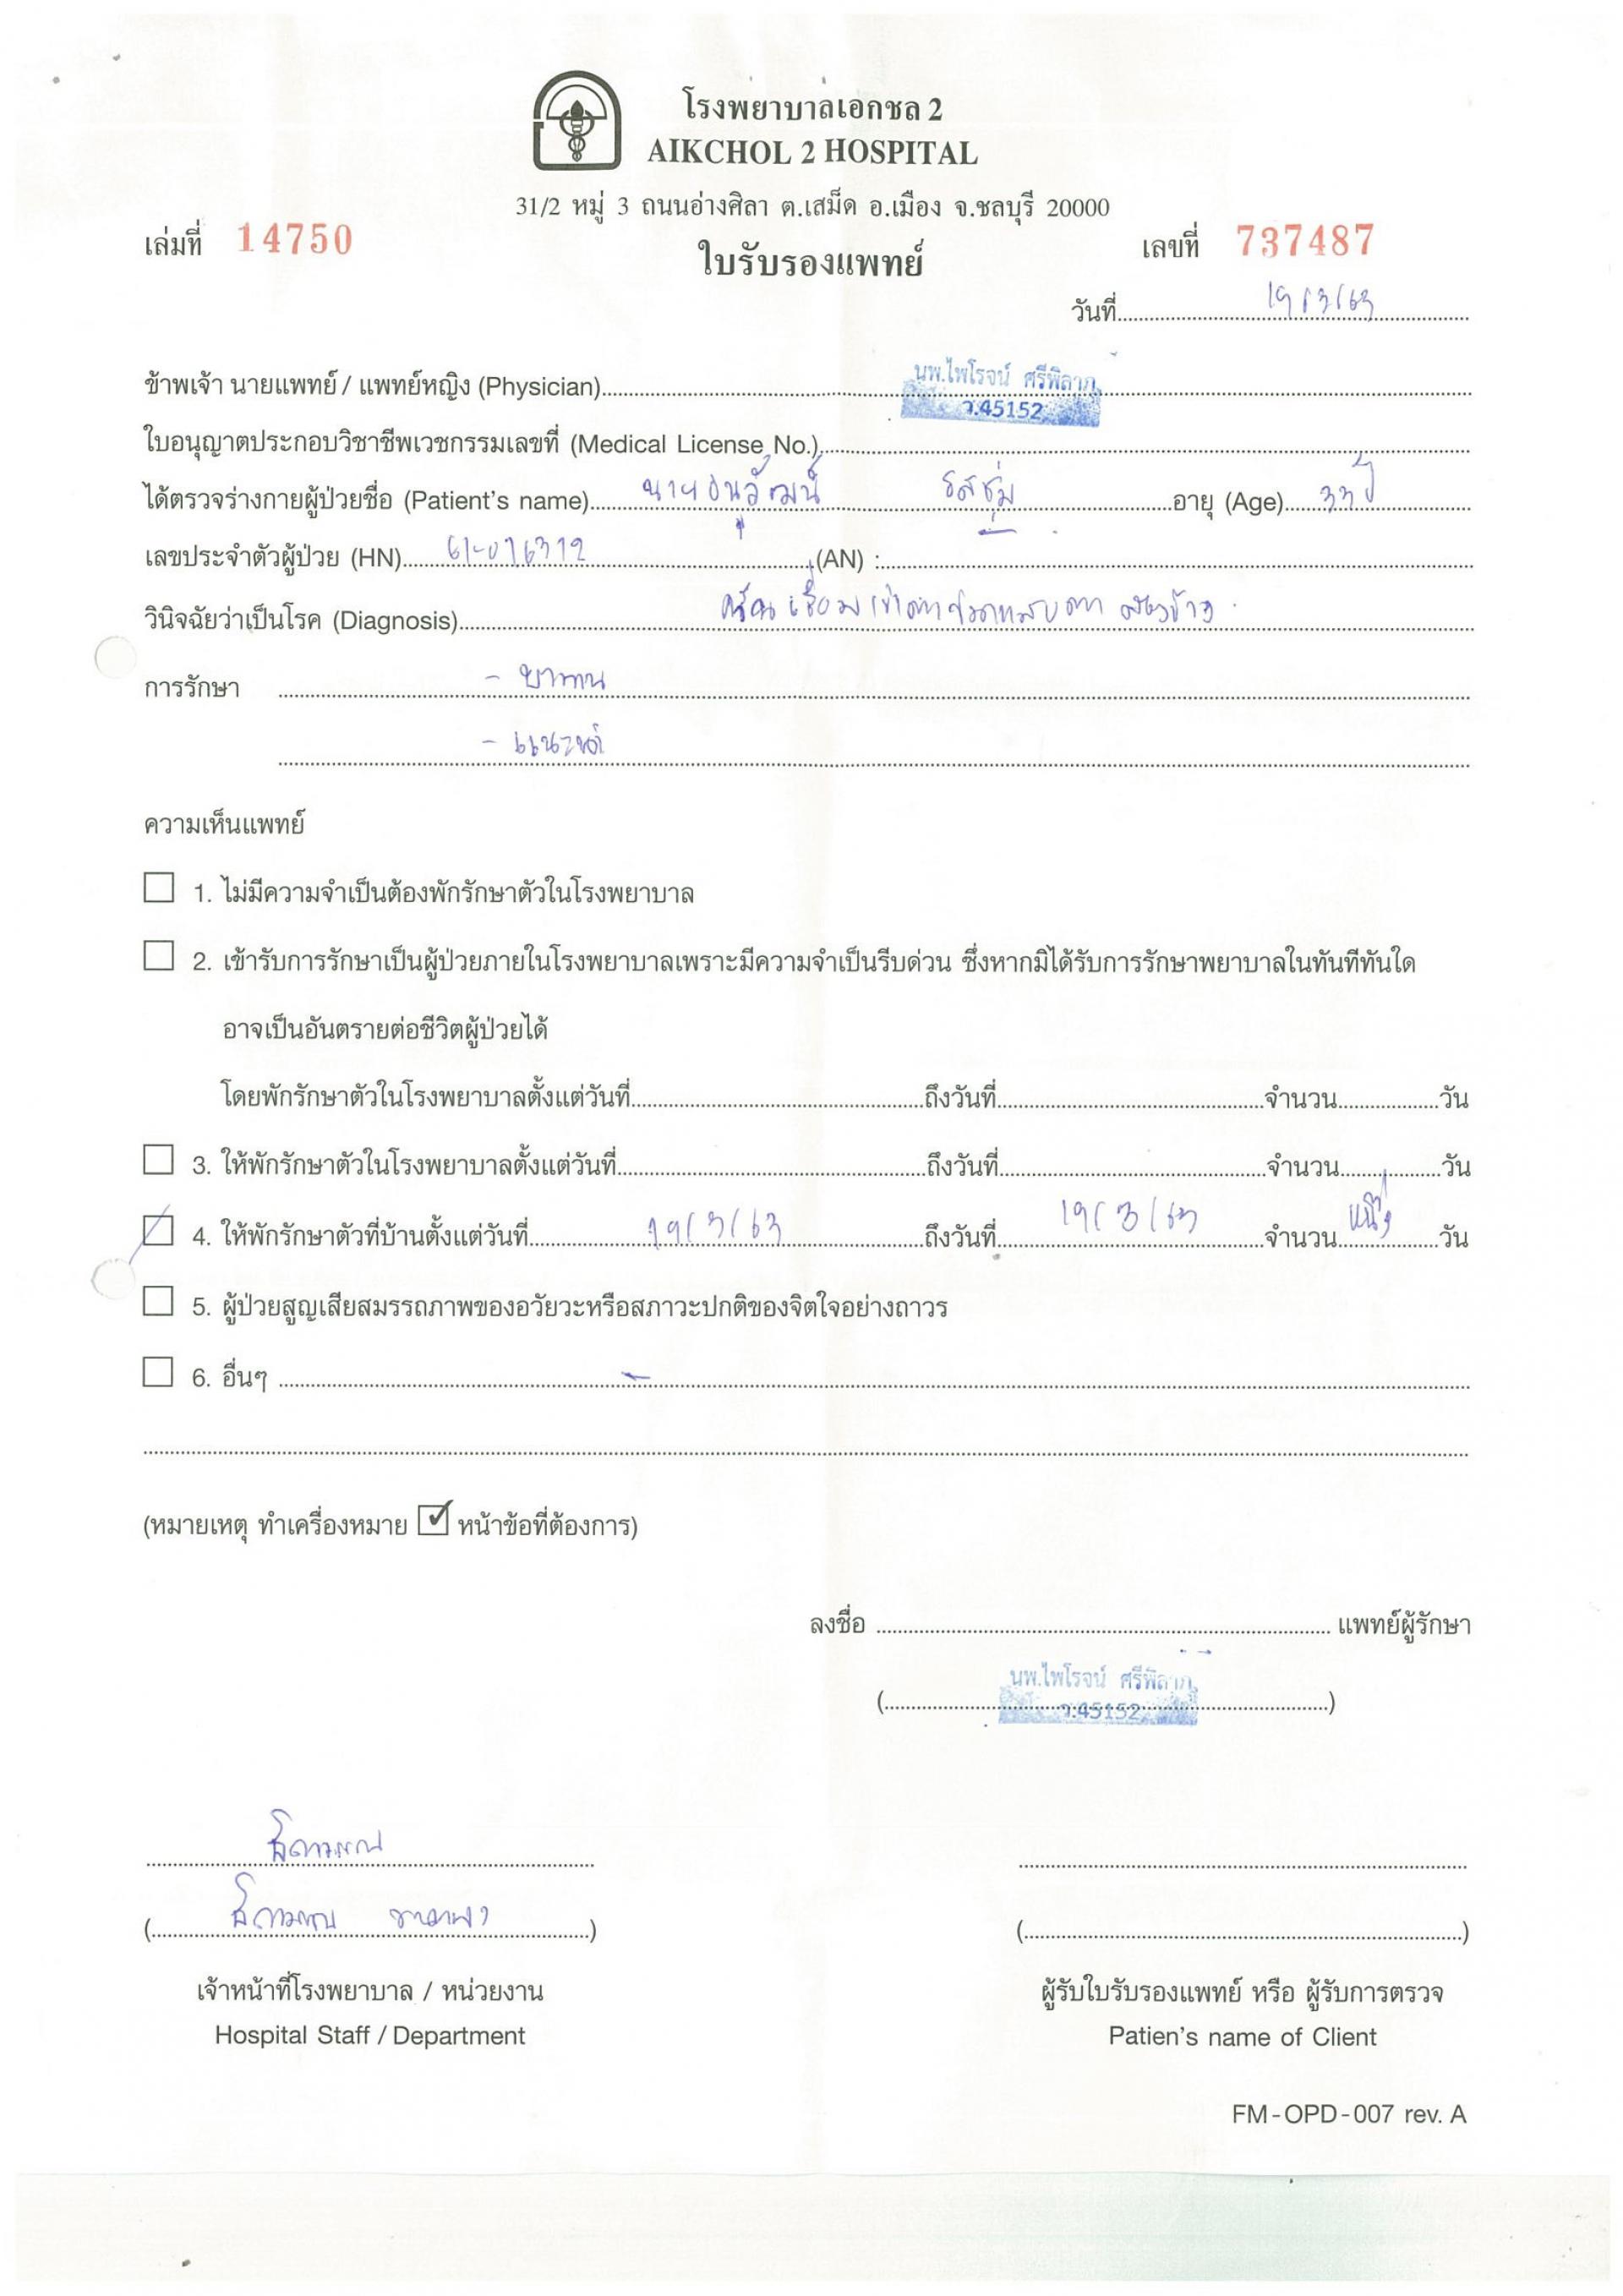 โรงพยาบาลเอกชล 2
AIKCHOL 2 HOSPITAL
31/2 หมู่ 3 ถนนอ่างศิลา ต.เสม็ด อ.เมือง จ.ชลบุรี 20000
เล่มที่ 14750
เลขที่ 737487
ใบรับรองแพทย์
วันที่ 19/3/63
ข้าพเจ้า นายแพทย์ / แพทย์หญิง (Physician) นพ.ไพโรจน์ ศรีพิลาภ
ว.45152
ใบอนุญาตประกอบวิชาชีพเวชกรรมเลขที่ (Medical License No.)
ได้ตรวจร่างกายผู้ป่วยชื่อ (Patient's name) นาย อายุ (Age) 33 ปี
เลขประจำตัวผู้ป่วย (HN) 61-016312 (AN) :
วินิจฉัยว่าเป็นโรค (Diagnosis)
การรักษา - ยาทาน
- แนะนำ
ความเห็นแพทย์
1. ไม่มีความจำเป็นต้องพักรักษาตัวในโรงพยาบาล
2. เข้ารับการรักษาเป็นผู้ป่วยภายในโรงพยาบาลเพราะมีความจำเป็นรีบด่วน ซึ่งหากมิได้รับการรักษาพยาบาลในทันทีทันใด
อาจเป็นอันตรายต่อชีวิตผู้ป่วยได้
โดยพักรักษาตัวในโรงพยาบาลตั้งแต่วันที่ ถึงวันที่ จำนวน วัน
3. ให้พักรักษาตัวในโรงพยาบาลตั้งแต่วันที่ ถึงวันที่ จำนวน วัน
4. ให้พักรักษาตัวที่บ้านตั้งแต่วันที่ 19/3/63 ถึงวันที่ 19/3/63 จำนวน หนึ่ง วัน
5. ผู้ป่วยสูญเสียสมรรถภาพของอวัยวะหรือสภาวะปกติของจิตใจอย่างถาวร
6. อื่นๆ -
(หมายเหตุ ทำเครื่องหมาย ☑ หน้าข้อที่ต้องการ)
ลงชื่อ แพทย์ผู้รักษา
(นพ.ไพโรจน์ ศรีพิลาภ)
ว.45152
เจ้าหน้าที่โรงพยาบาล / หน่วยงาน
Hospital Staff / Department
ผู้รับใบรับรองแพทย์ หรือ ผู้รับการตรวจ
Patien's name of Client
FM-OPD-007 rev. A